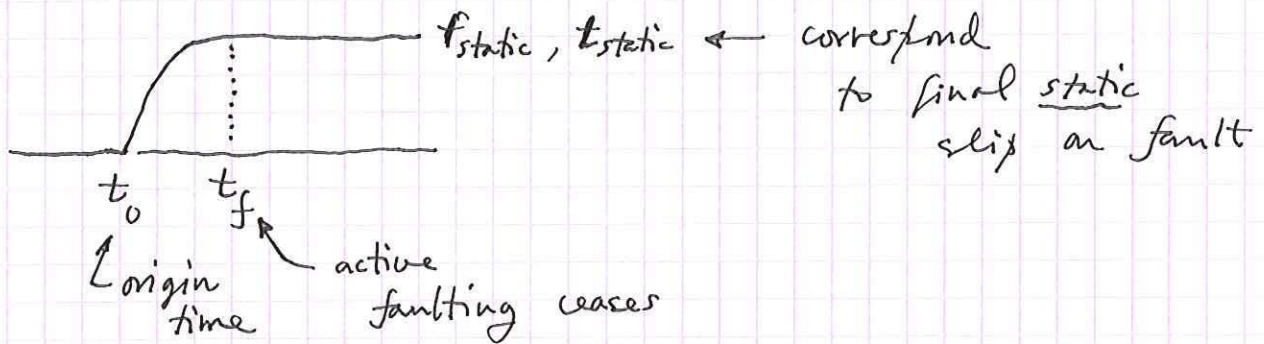 f_static, t_static ← correspond
to final static
slip on fault
t_0 t_f
origin
time
active
faulting ceases